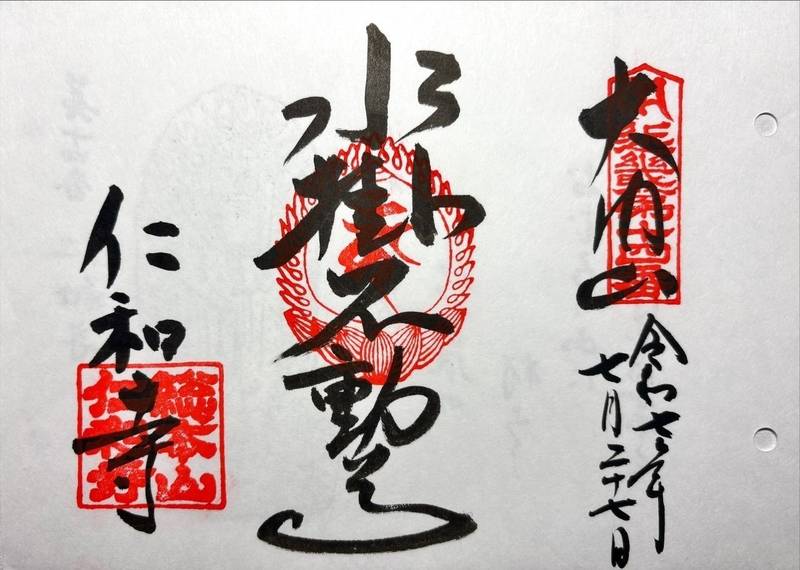 大内山
令和七年
七月二十七日
水掛不動尊
仁和寺
總本山
仁和寺